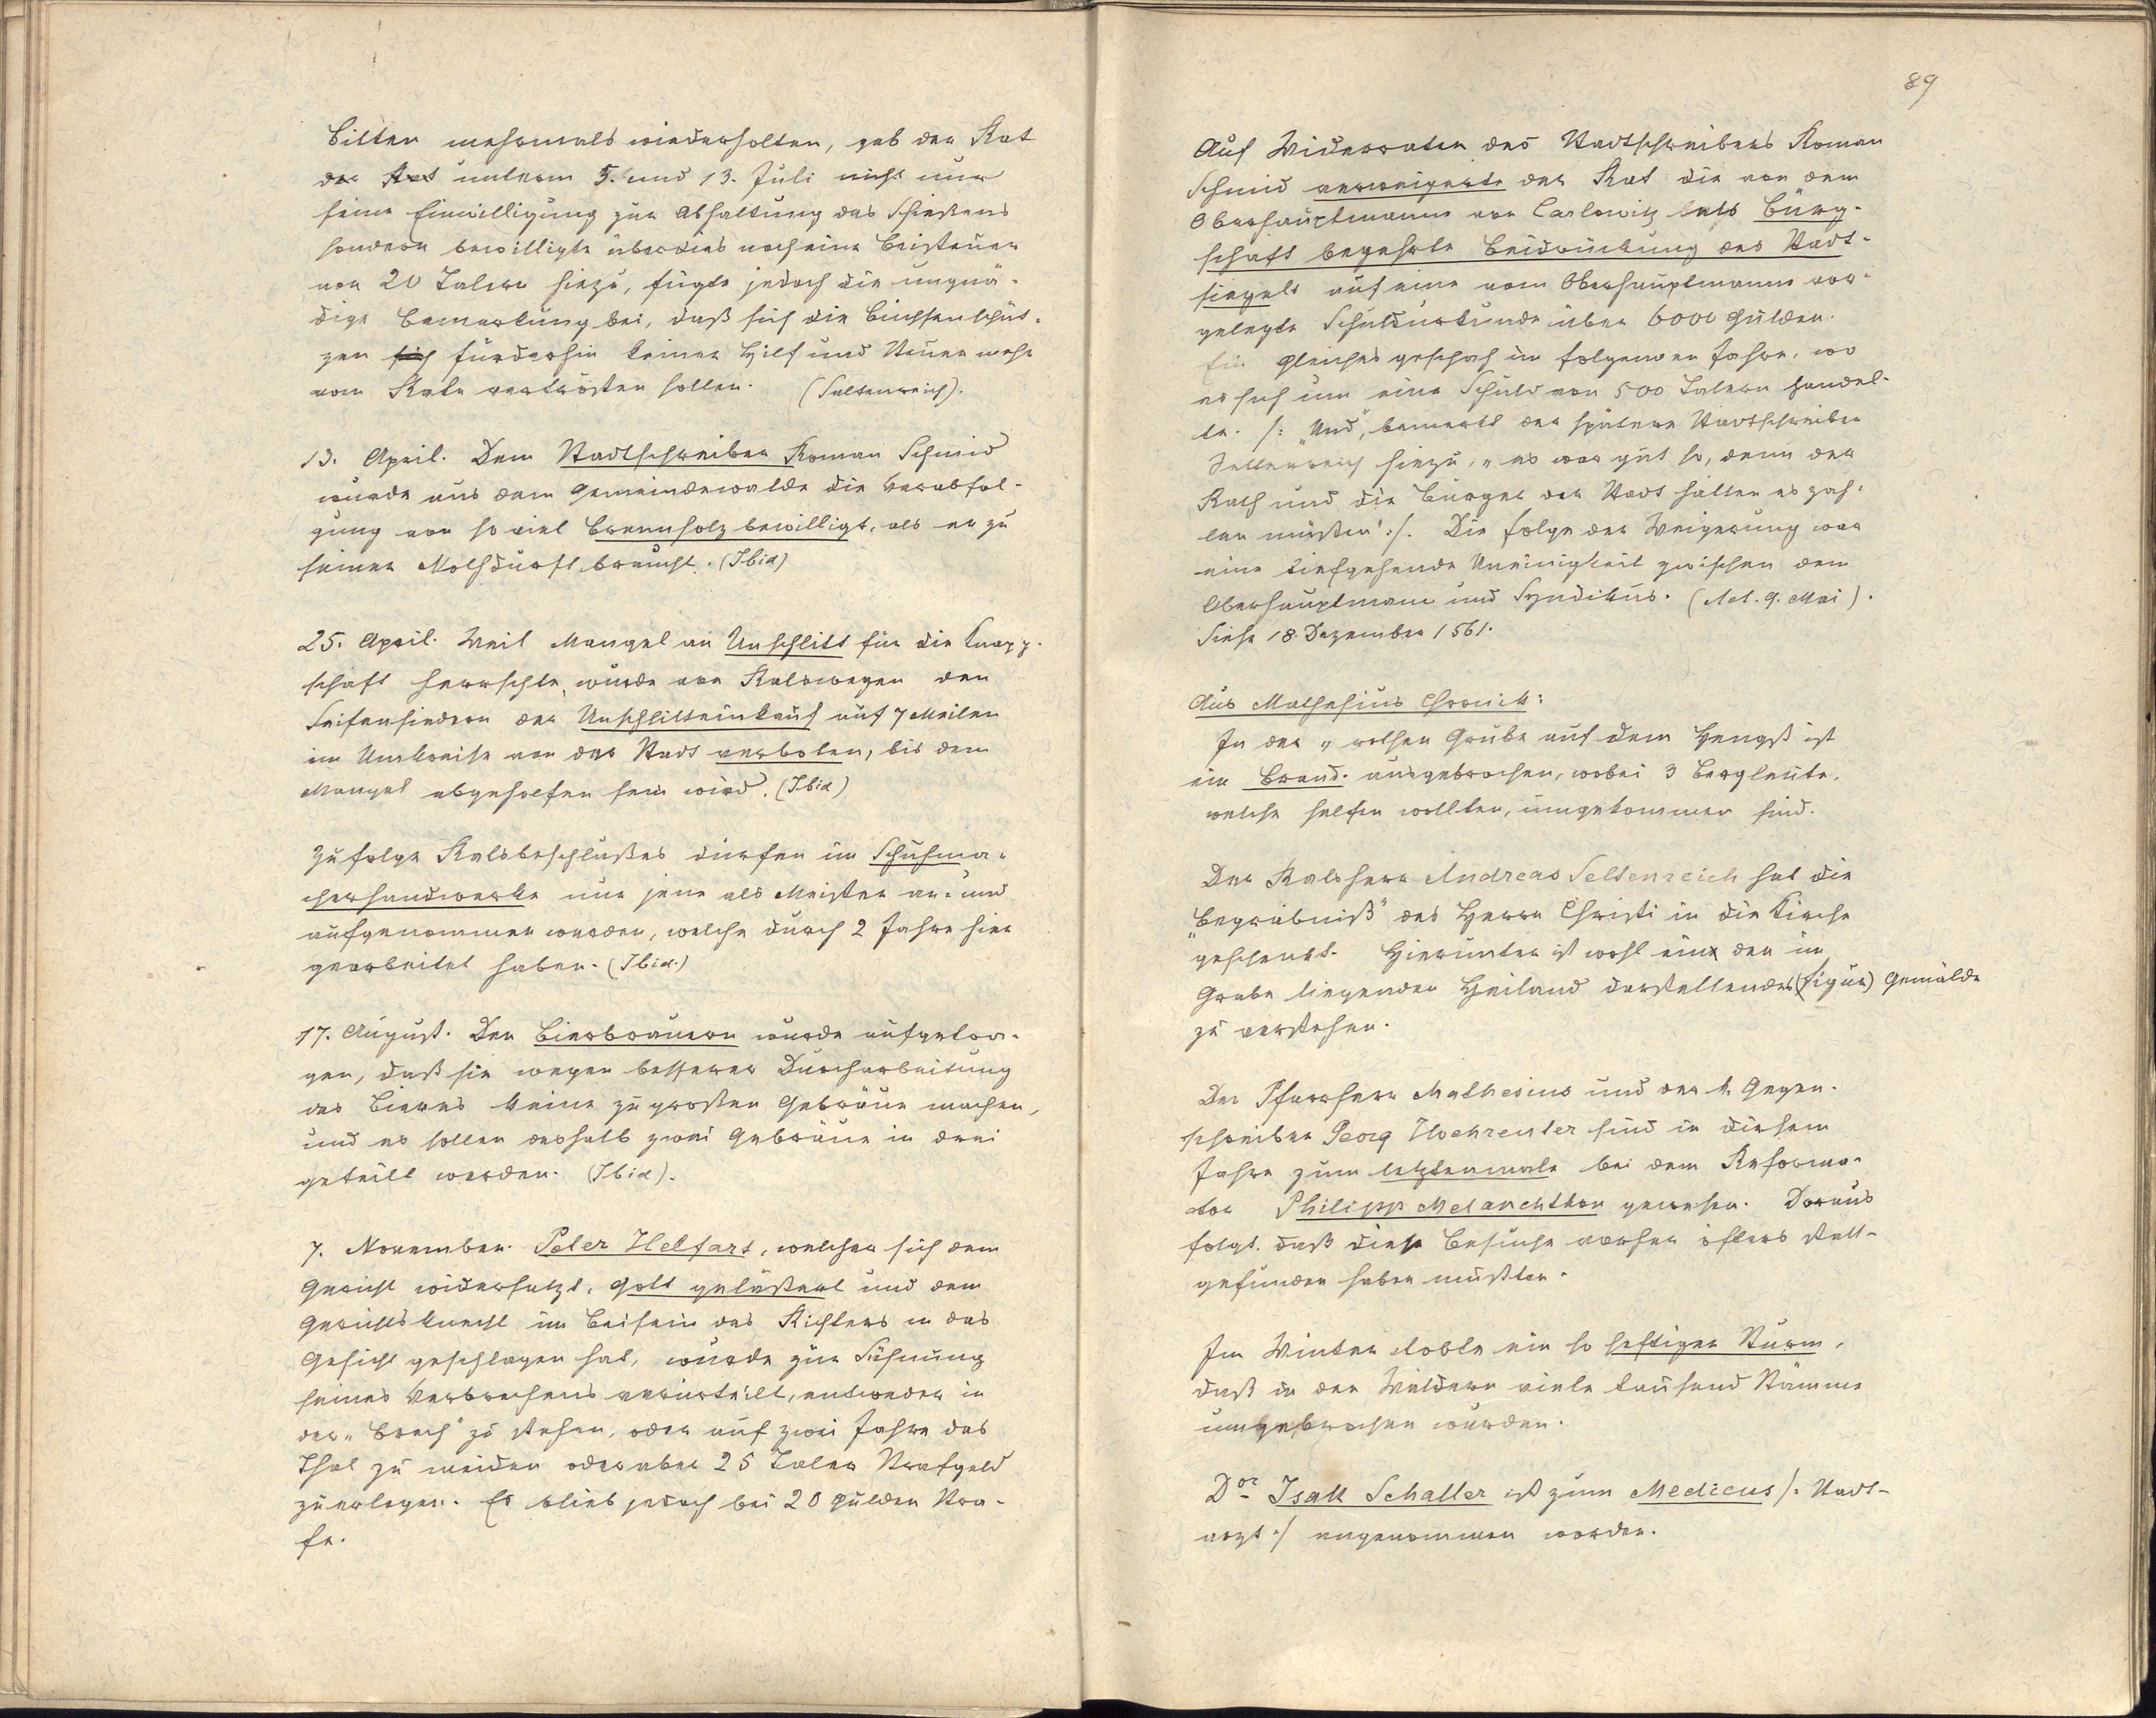 bitten mehrmals wiederholten, gab der Rat
der Rat unterm 5. und 13. Juli nicht nur
seine Einwilligung zur Abhaltung des Schießens
sondern bewilligte überdies noch eine Beisteuer
von 20 Talern hiezu, fügte jedoch die ungnä-
dige Bemerkung bei, daß sich die Büchsenschüt-
zen sich fürderhin keiner Hilf und Steuer mehr
vom Rate vertrösten sollen. (Seltenreich).
13. April. Dem Stadtschreiber Roman Schmid
wurde aus dem Gemeindewalde die Verabfol-
gung von so viel Brennholz bewilligt, als er zu
seiner Nothdurft braucht. (Ibid)
25. April. Weil Mangel an Unschlitt für die Knapp-
schaft herrschte, wurde von Ratswegen den
Seifensiedern der Unschlitteinkauf auf 7 Meilen
im Umkreise von der Stadt verboten, bis dem
Mangel abgeholfen sein wird. (Ibid)
Zufolge Ratsbeschlußes dürfen im Schuhma-
cherhandwerke nur jene als Meister an- und
aufgenommen werden, welche durch 2 Jahre hier
gearbeitet haben. (Ibid.)
17. August. Den Bierbrauern wurde aufgetra-
gen, daß sie wegen besserer Durcharbeitung
des Bieres keine zu großen Gebräue machen,
und es sollen deshalb zwei Gebräue in drei
geteilt werden. (Ibid).
7. November. Peter Helfart, welcher sich dem
Gericht widersetzt, Gott geläßtert und dem
Gerichtsknecht im Beisein des Richters in das
Gesicht geschlagen hat, wurde zur Sühnung
seines Verbrechens verurteilt, entweder in
der „Brech“ zu stehen, oder auf zwei Jahre das
Thal zu meiden oder aber 25 Taler Strafgeld
zu erlegen. Es blieb jedoch bei 20 Gulden Stra-
fe.
89
Auf Widerraten des Stadtschreibers Roman
Schmid verweigerte der Rat die von dem
Oberhauptmanne von Carlowitz als Bürg-
schaft begehrte Beidrückung des Stadt-
siegels auf eine vom Oberhauptmanne vor-
gelegte Schuldurkunde über 6000 Gulden.
Ein Gleiches geschah im folgenden Jahre, wo
es sich um eine Schuld von 500 Talern handel-
te. /: „Und“, bemerkt der spätere Stadtschreiber
Seltenreich hiezu, „es war gut so, denn der
Rath und die Bürger der Stadt hätten es zah-
len müßen“ :/. Die Folge der Weigerung war
eine tiefgehende Uneinigkeit zwischen dem
Oberhauptmann und Syndikus. (Act. 9. Mai).
Siehe 18. Dezember 1561.
Aus Mathesius Chronik:
In der „rothen Grube auf dem Hengst ist
ein Brand ausgebrochen, wobei 3 Bergleute,
welche helfen wollten, umgekommen sind.
Der Ratsherr Andreas Seltenreich hat die
„Begräbniß“ des Herrn Christi in die Kirche
geschenkt. Hierunter ist wohl ein den im
Grabe liegenden Heiland darstellendes (Figur) Gemälde
zu verstehen.
Der Pfarrherr Mathesius und der k. Gegen-
schreiber Georg Hochreuter sind in diesem
Jahre zum letztenmale bei dem Reforma-
tor Philipp Melanchthon gewesen. Daraus
folgt, daß diese Besuche vorher öfters statt-
gefunden haben mußten.
Im Winter tobte ein so heftiger Sturm,
daß in den Wäldern viele tausend Stämme
umgebrochen wurden.
Dor Isak Schaller ist zum Medicus /: Stadt-
arzt :/ angenommen worden.